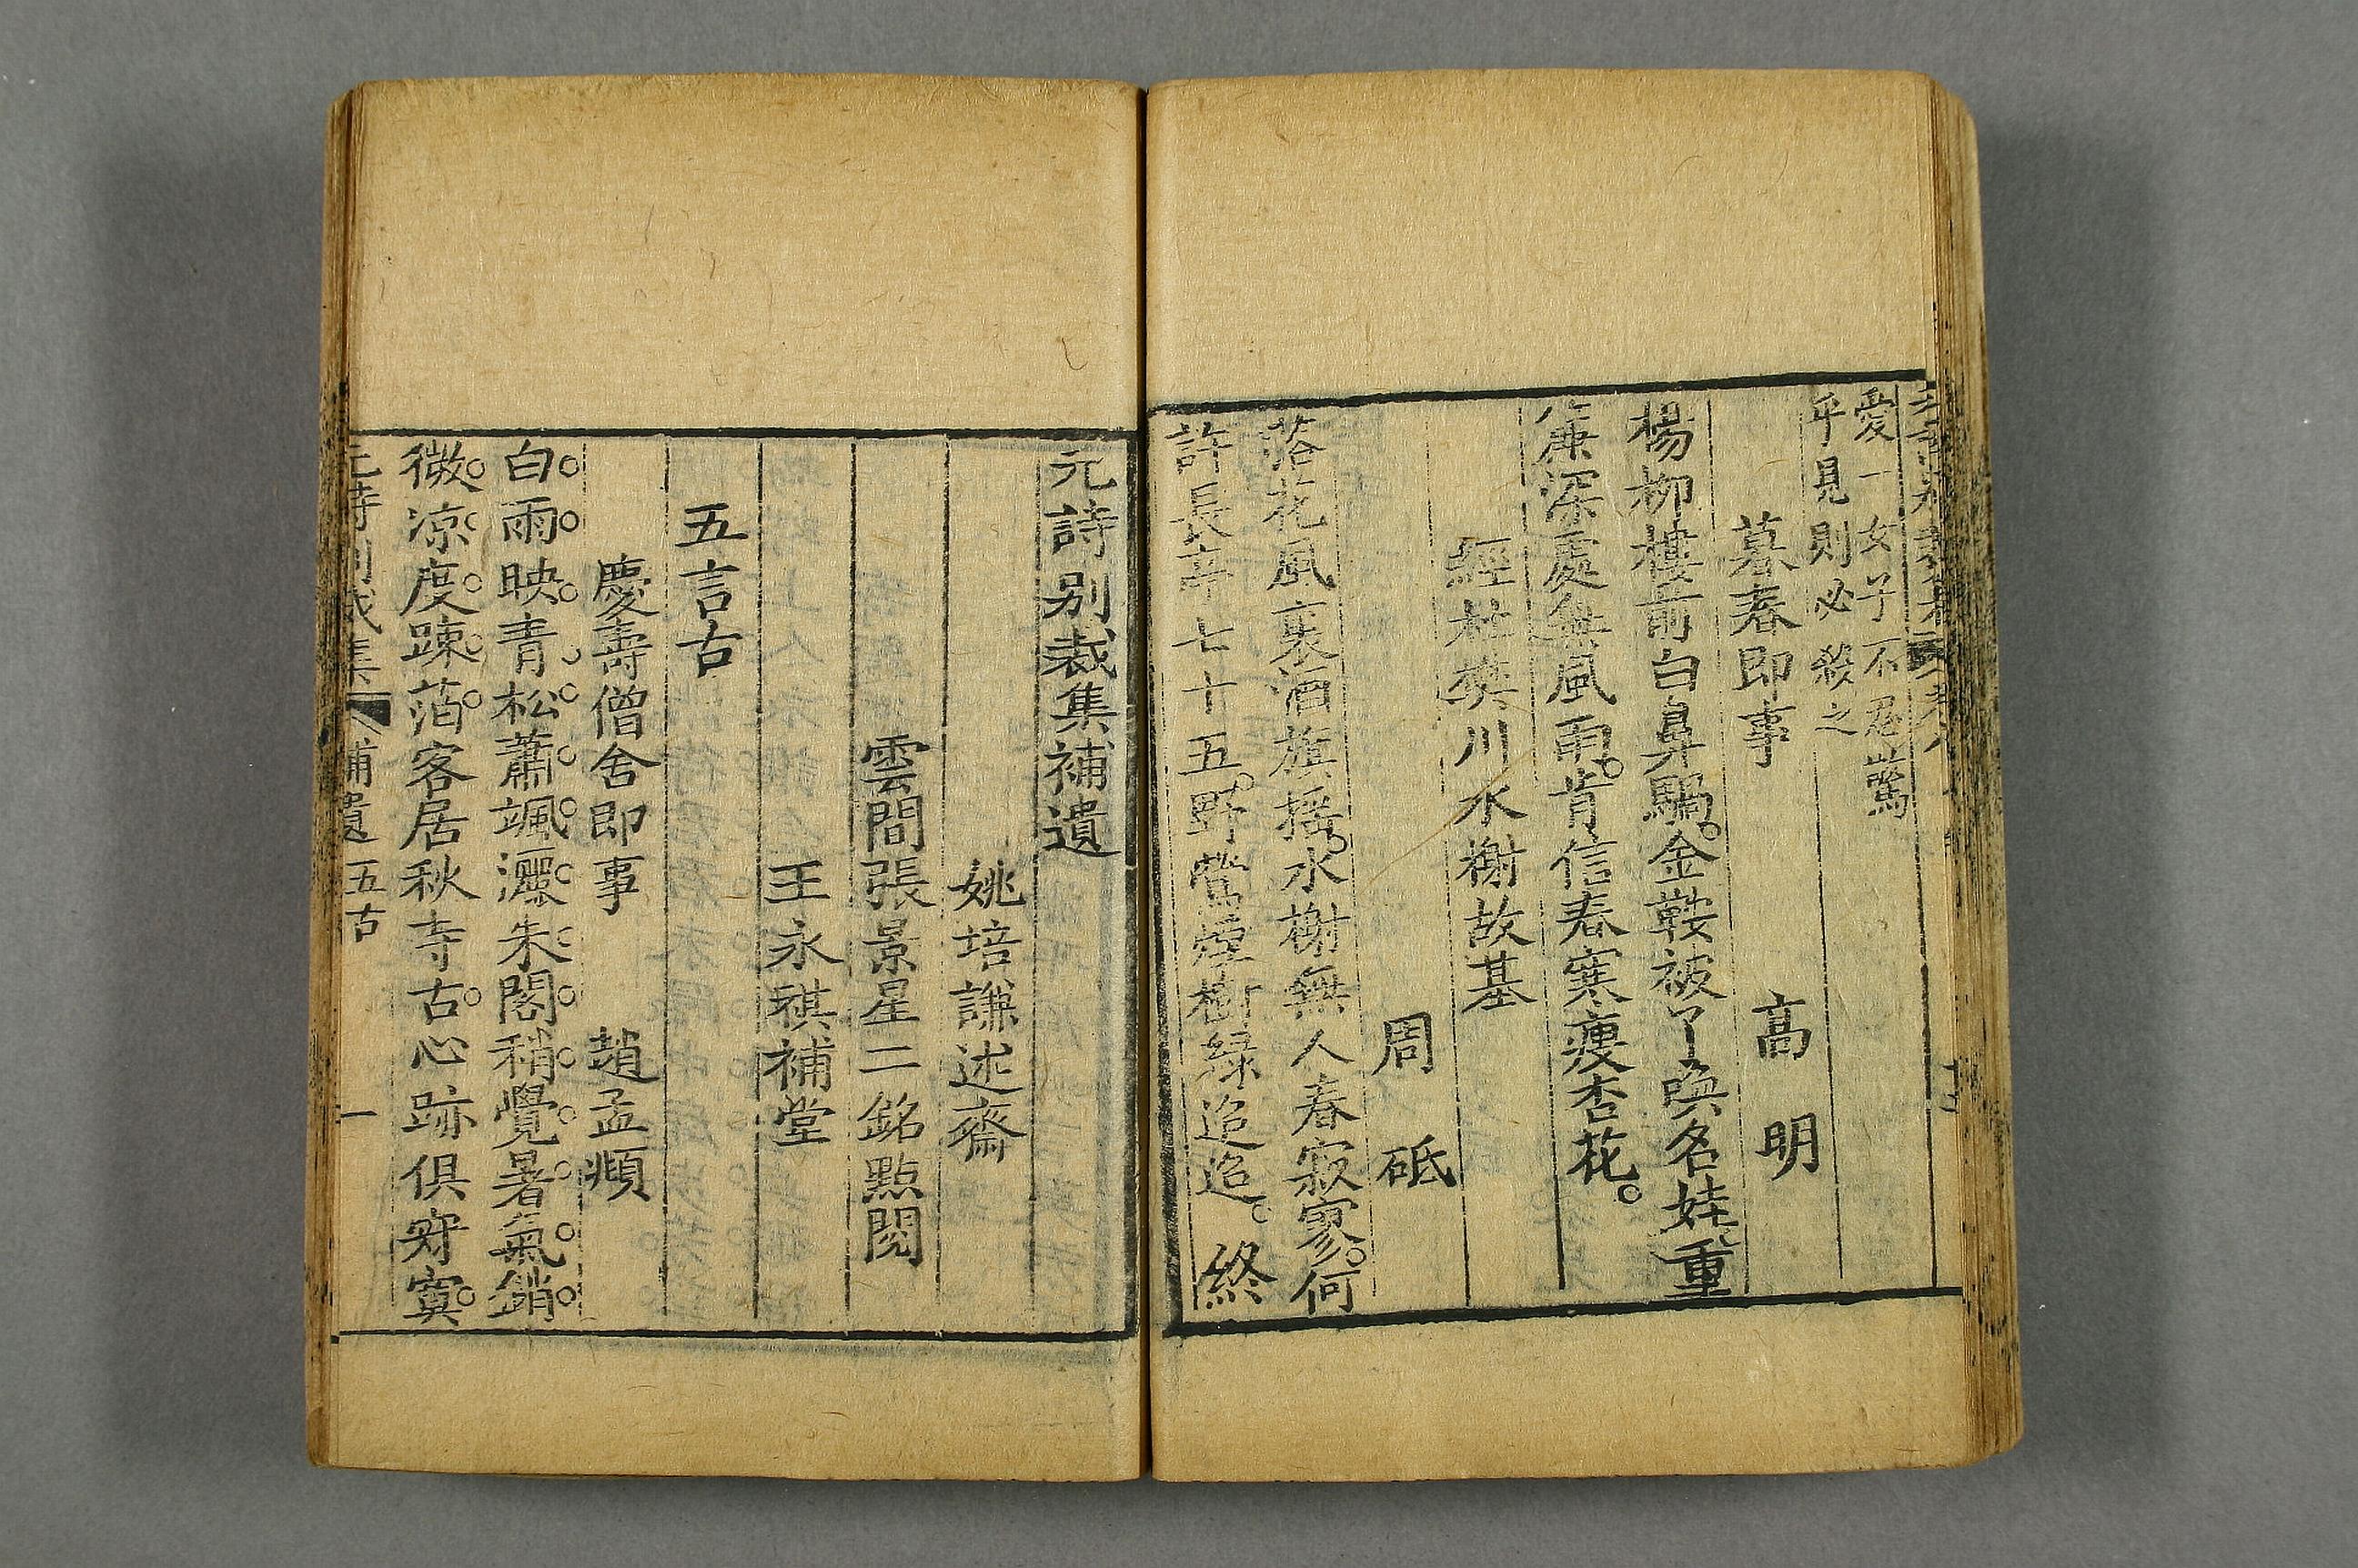 愛一女子不忍驚
乎見則必殺之
暮春即事　高明
楊柳樓前白鼻騧。金鞍被了喚名娃。重
簾深處無風雨。肯信春寒瘦杏花。
經杜樊川水榭故基
周砥
落花風裏酒旗搖。水榭無人春寂寥。何
許長亭七十五。野鶯煙樹綠迢迢。終
元詩別裁集補遺
姚培謙述齋
雲間張景星二銘點閱
王永祺補堂
五言古
慶壽僧舍即事　趙孟頫
白雨映青松蕭颯灑朱閣稍覺暑氣銷
微涼度踈箔客居秋寺古心跡俱寂寞
元詩別裁集　補遺　五古　一